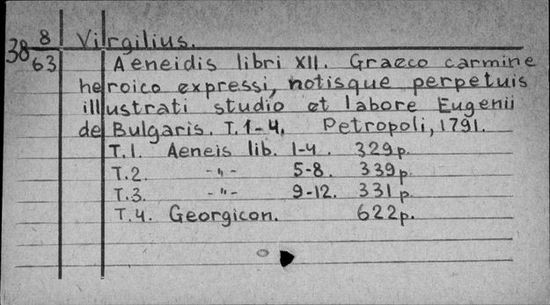 38 8/63 Virgilius.
Aeneidis libri XII. Graeco carmine
heroico expressi, notisque perpetuis
illustrati studio et labore Eugenii
de Bulgaris. T. 1-4. Petropoli, 1791.
T.1. Aeneis lib. 1-4. 329p.
T.2. -"- 5-8. 339p.
T.3. -"- 9-12. 331p.
T.4. Georgicon. 622p.